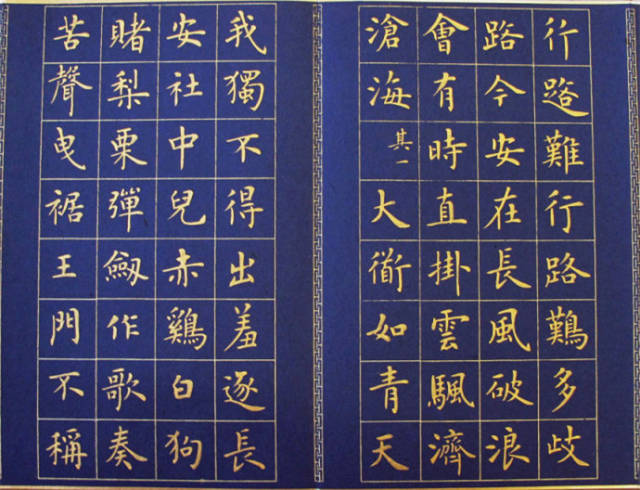 行路難行路難多歧
路今安在長風破浪
會有時直掛雲颿濟
滄海其一大衜如青天
我獨不得出羞逐長
安社中兒赤鷄白狗
賭梨栗彈劔作歌奏
苦聲曳裾王門不稱